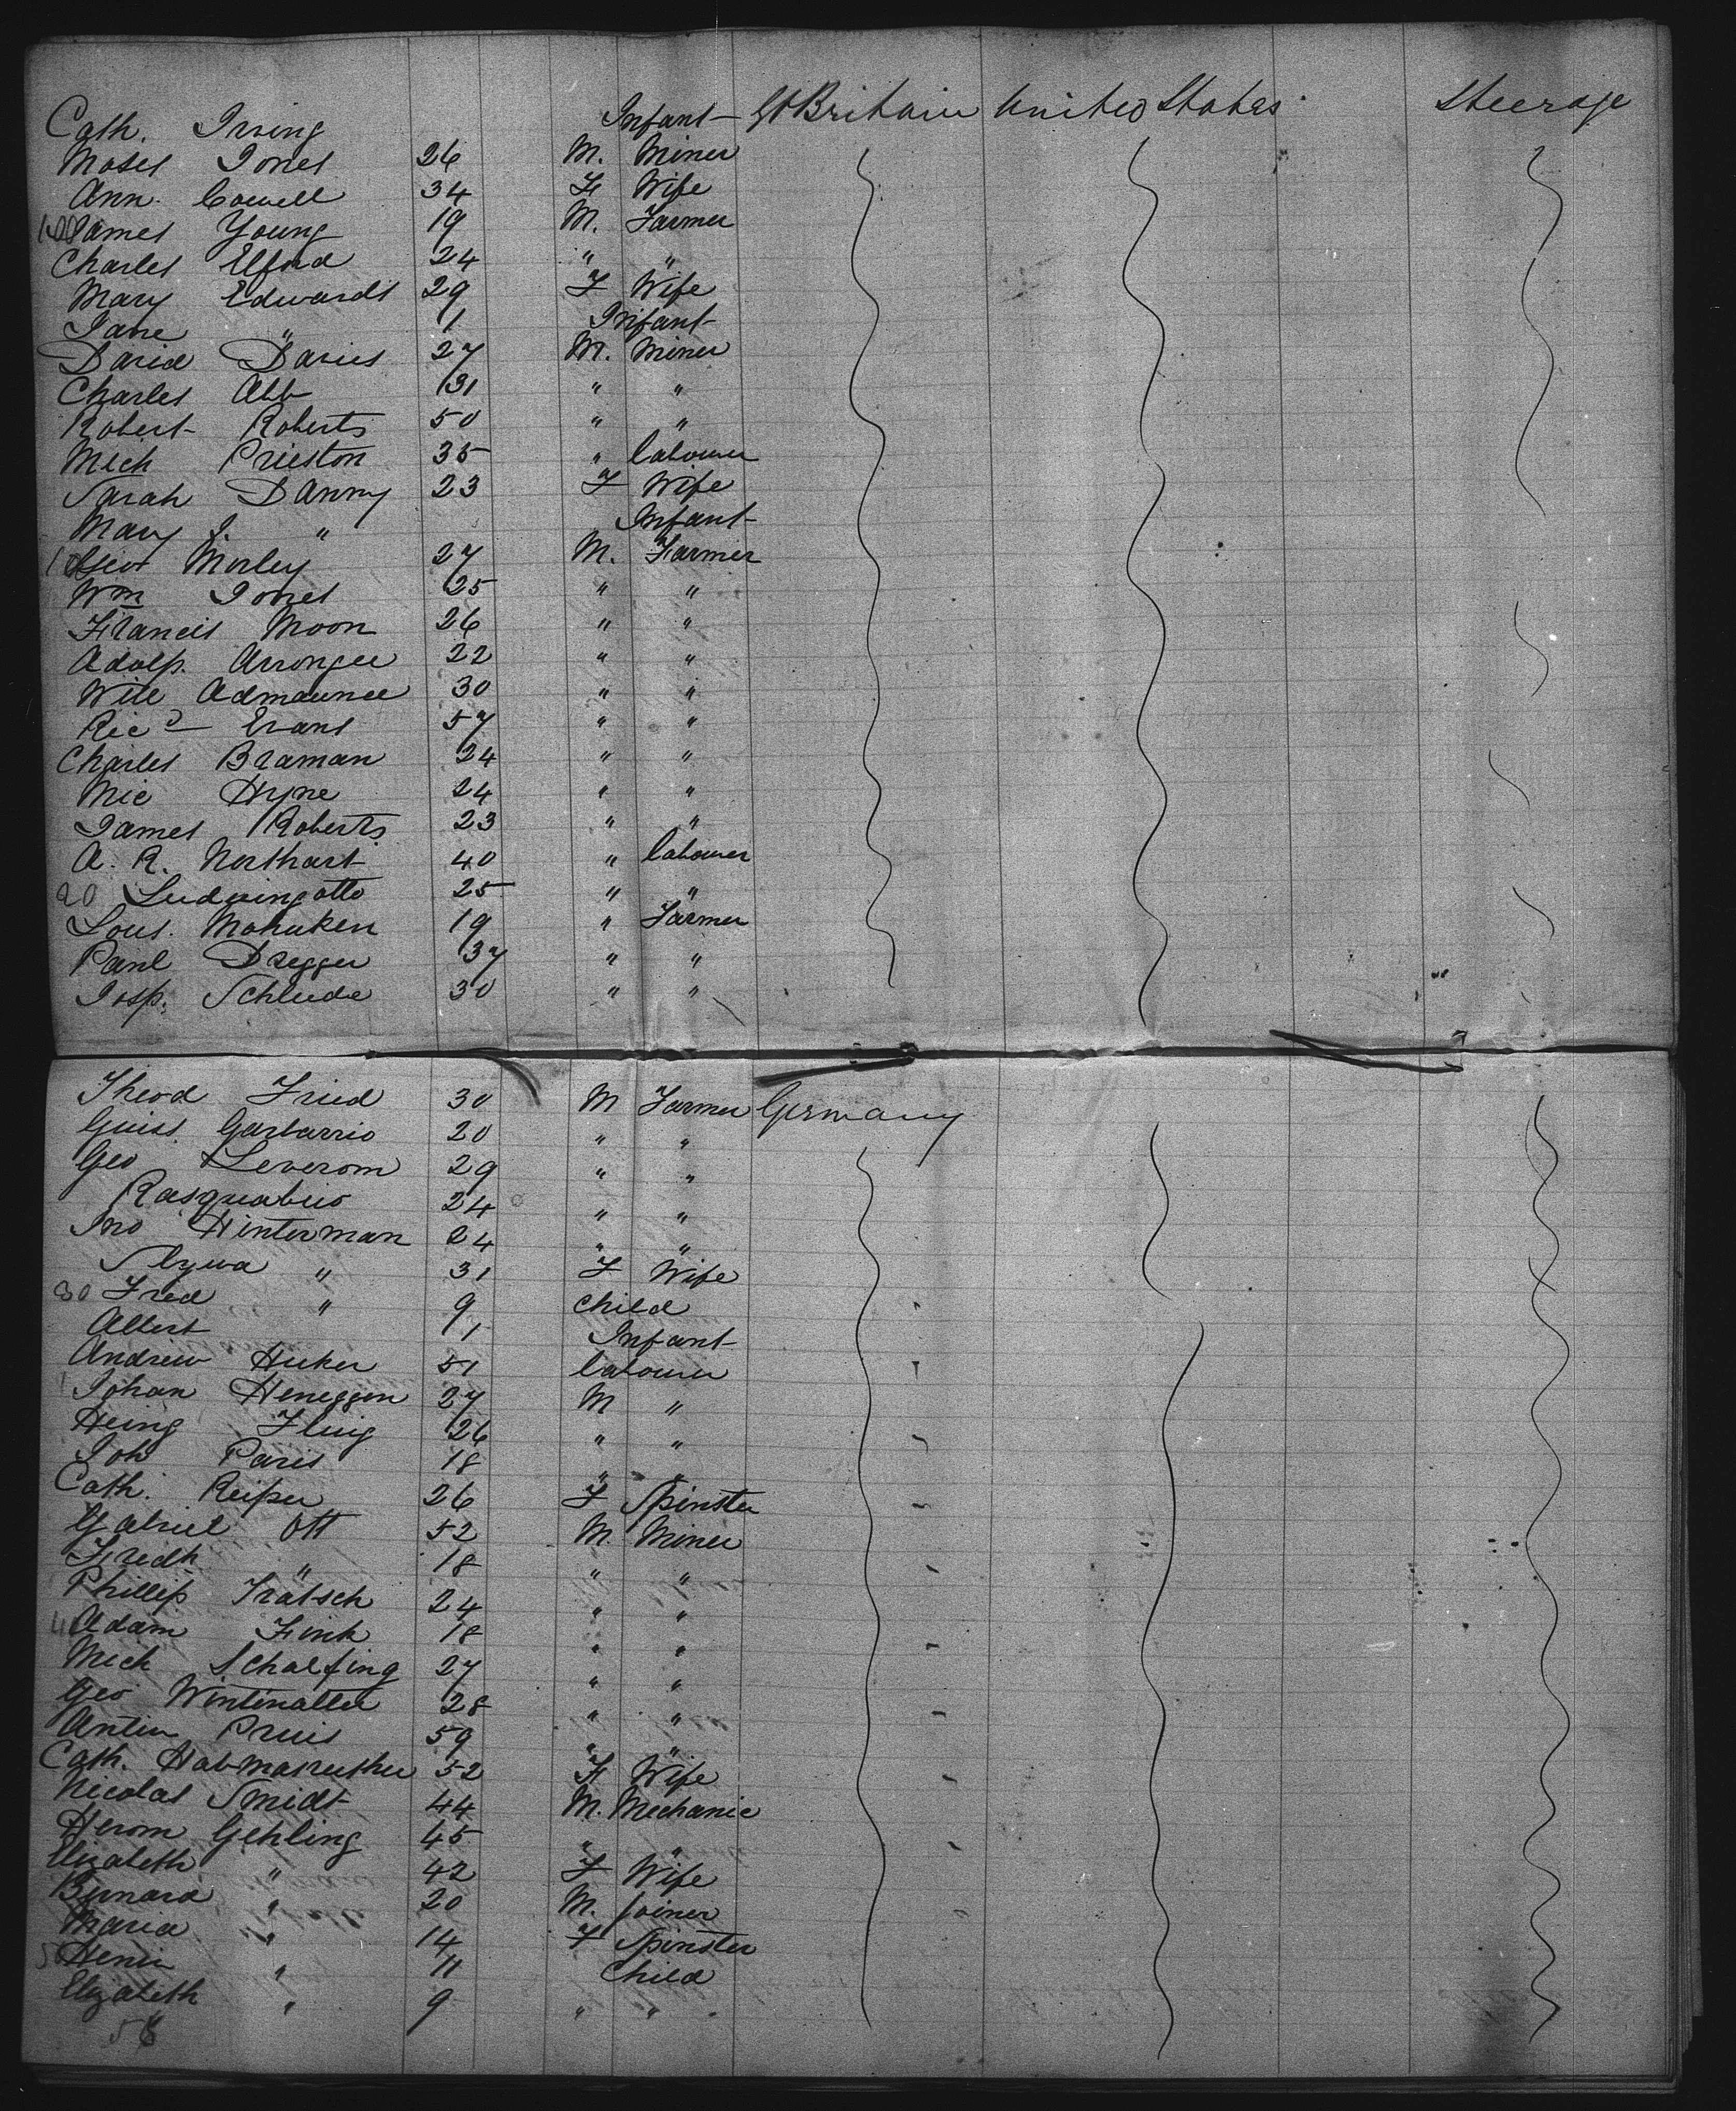 Cath. Irving Infant Gt Britain United States Steerage
Moses Jones 26 M. Miner
Ann Cowell 34 F Wife
James Young 19 M. Farmer
Charles Elford 24 " "
Mary Edwards 29 F Wife
Jane " 1 Infant
David Davies 27 M. Miner
Charles Abb 31 " "
Robert Roberts 50 " "
Mich Prieston 35 " labourer
Sarah Danny 23 F Wife
Mary J. " Infant
10 Geo Morley 27 M. Farmer
Wm Jones 25 " "
Francis Moon 26 " "
Adolp. Arronger 22 " "
Will 30 " "
Ricd Evans 57 " "
Charles Braman 24 " "
Mic Hyne 24 " "
James Roberts 23 " "
A. R. Northart 40 " labourer
20 Ludwing otto 25 " "
Lous. Mohuken 19 " Farmer
Paul Dregger 37 " "
Josp. Schlude 30 " "
Theod Fried 30 M Farmer Germany
Guiss. Garbarrio 20 " "
Geo Leverom 29 " "
Rasquabuo 24 " "
Jno Hinterman 24 " "
" 31 F Wife
30 Fred " 9 Child
Albert 1 Infant
Andrew Huker 51 labourer
Johan Heneggen 27 M "
Heing Fluig 26 " "
Joh Paris 18 " "
Cath. Reiper 26 F Spinster
Gabriel Ott 52 M. Miner
Fredk " 18 " "
Phillip Tratsch 24 " "
40 Adam Fink 18 " "
Mich Schalfing 27 " "
Geo Wintinatter 28 " "
Antin Pruis 59 " "
Cath. 52 F Wife
Nicolas Smidt 44 M. Mechanic
Herom Gehling 45 " "
Elizabeth " 42 F Wife
Bernard " 20 M. Joiner
Maria " 14 F Spinster
Henri " 11 Child
Elizabeth " 9 " "